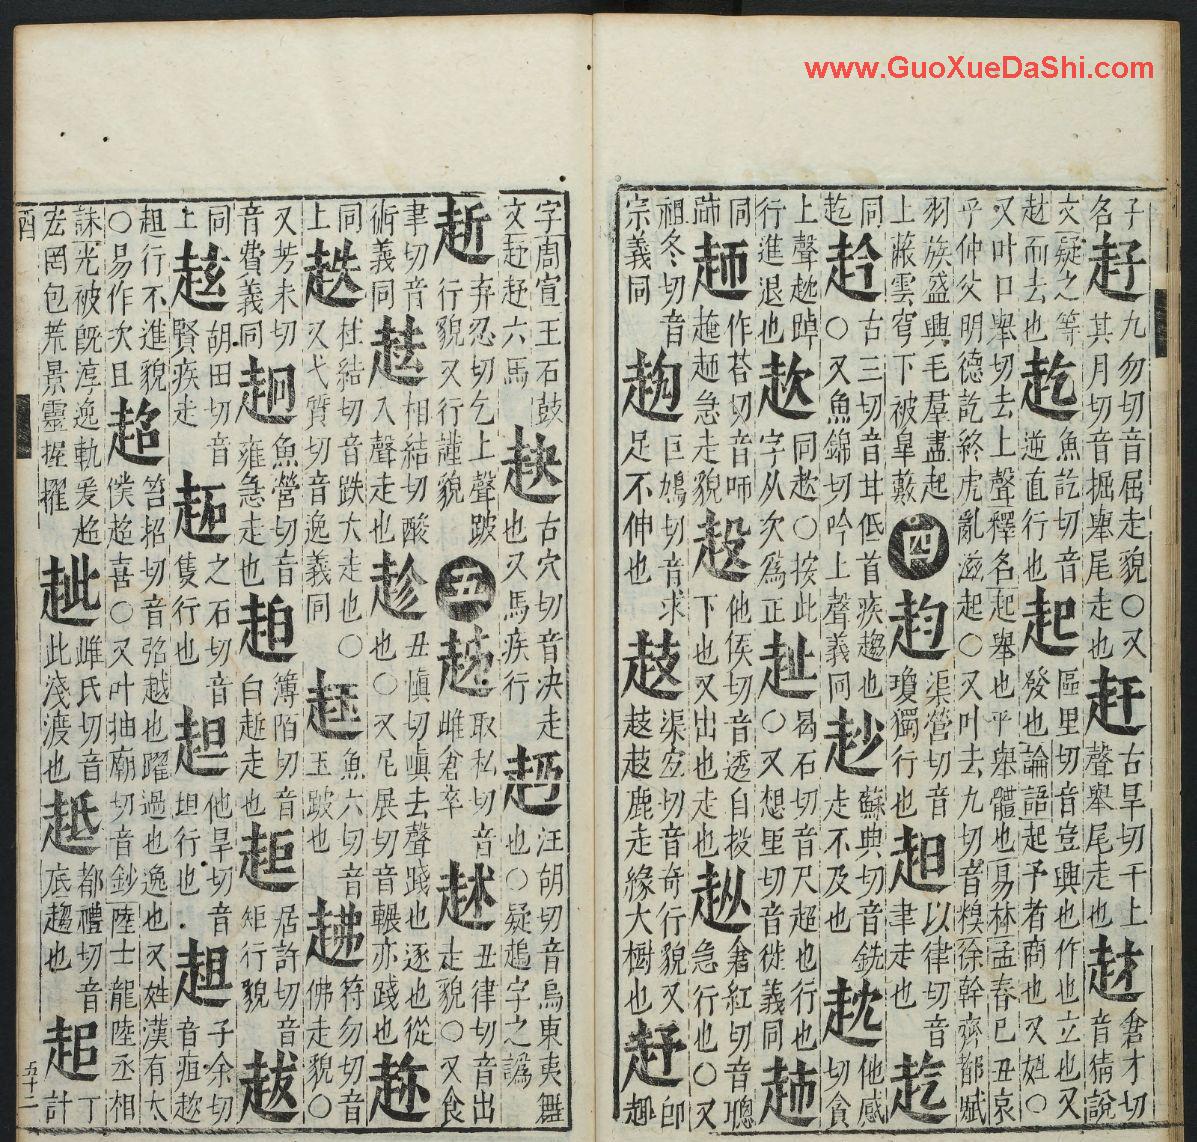 子名
九勿切音屈走貌○又其月切音掘舉尾走也
赶古旱切干上聲舉尾走也
倉才切音猜說
文疑之等赼而去也
魚訖切音逆直行也
起區里切音豈興也作也立也又發也論語起予者商也又姓○
又叶口舉切去上聲釋名起舉也平舉體也易林孟春已丑哀
乎仲父明德訖終虎亂滋起○又叶去九切音糗徐幹齊都賦
羽族盛興毛羣盡起上蔽雲穹下被皐藪
四
赹渠營切音瓊獨行也
以律切音聿走也
古三切音甘低首疾趨也○又魚錦切吟上聲義同
赻蘇典切音銑走不及也
他感切貪
上聲踔行進退也
同趑○按此字从次為正
昌石切音尺超也行也○又想里切音徙義同
作荅切音咂急走貌
他侯切音透自投下也又出也走也
倉紅切音聰急行也○又
祖冬切音宗義同
巨鳩切音求足不伸也
渠宜切音奇行貌又䞚䞚鹿走緣大樹也
字周宣王石鼓文六馬
赽古穴切音决走也又馬疾行
汪胡切音烏東夷舞也○疑趨字之譌
赾弃忍切乞上聲跛行貌又行謹貌
五
取私切音雌倉卒
丑律切音出走貌○又食
聿切音術義同
相結切酸入聲走也
趁丑慎切嗔去聲踐也逐也從也○又尼展切音輾亦踐也
趂同上
杜結切音跌大走也○又弋質切音逸義同
魚六切音玉跛也
符勿切音佛走貌○
又芳未切音費義同
魚營切音雍急走也
簿陌切音白趀走也
居許切音矩行貌
同上
胡田切音賢疾走
之石切音隻行也
他旱切音坦行也
趄子余切音疽趑
趄行不進貌○易作次且
超笞招切音弨越也躍過也逸也又姓漢有太僕超喜○又叶抽廟切音鈔陸士龍陸丞相
誄光被旣淳逸軌爰超宏罔包荒景靈握擢
雌氏切音此淺渡也
都禮切音底趨也
丁計
酉
五十二
www.GuoXueDaShi.com